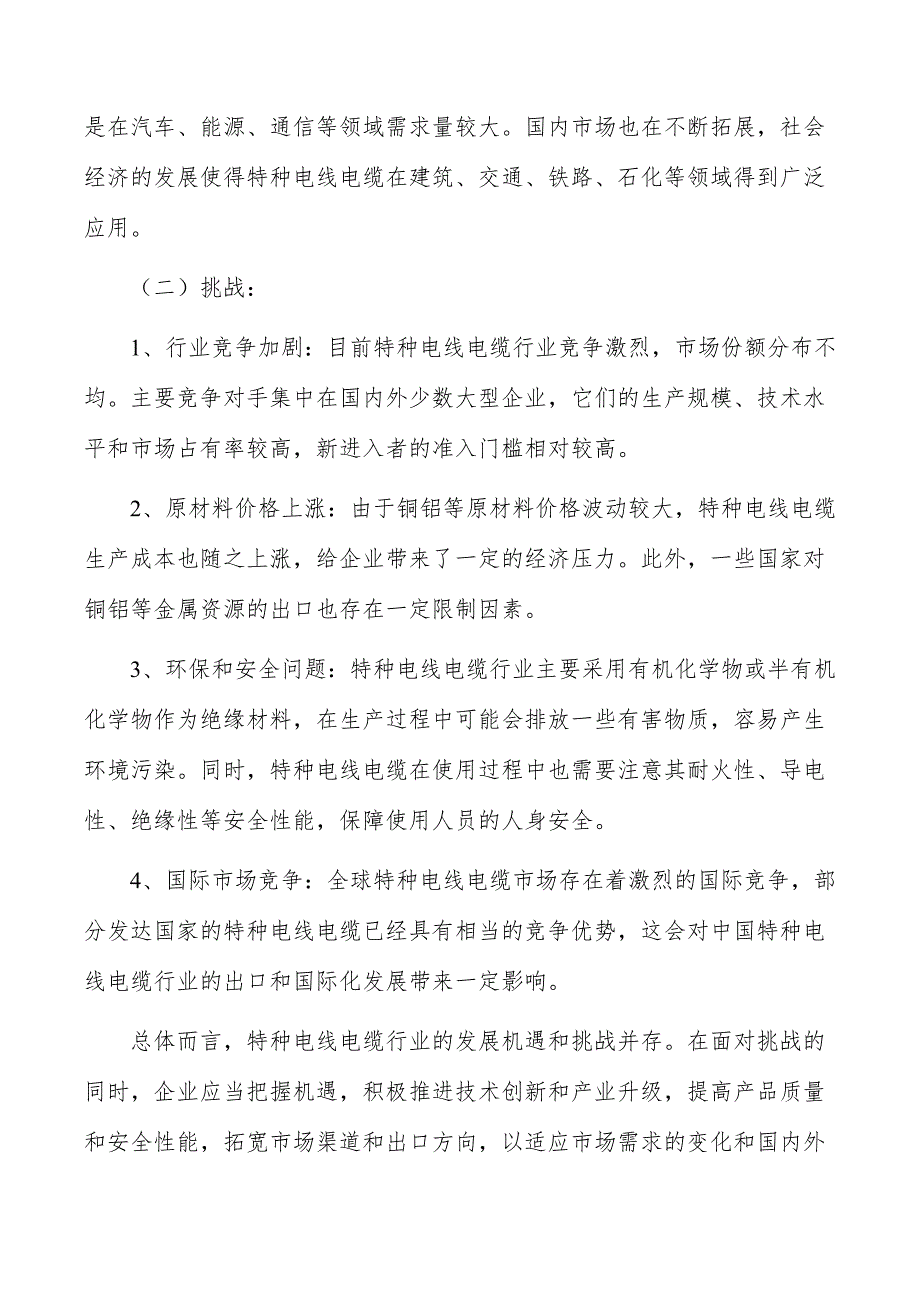 是在汽车、能源、通信等领域需求量较大。国内市场也在不断拓展，社会
经济的发展使得特种电线电缆在建筑、交通、铁路、石化等领域得到广泛
应用。
（二）挑战：
1、行业竞争加剧：目前特种电线电缆行业竞争激烈，市场份额分布不
均。主要竞争对手集中在国内外少数大型企业，它们的生产规模、技术水
平和市场占有率较高，新进入者的准入门槛相对较高。
2、原材料价格上涨：由于铜铝等原材料价格波动较大，特种电线电缆
生产成本也随之上涨，给企业带来了一定的经济压力。此外，一些国家对
铜铝等金属资源的出口也存在一定限制因素。
3、环保和安全问题：特种电线电缆行业主要采用有机化学物或半有机
化学物作为绝缘材料，在生产过程中可能会排放一些有害物质，容易产生
环境污染。同时，特种电线电缆在使用过程中也需要注意其耐火性、导电
性、绝缘性等安全性能，保障使用人员的人身安全。
4、国际市场竞争：全球特种电线电缆市场存在着激烈的国际竞争，部
分发达国家的特种电线电缆已经具有相当的竞争优势，这会对中国特种电
线电缆行业的出口和国际化发展带来一定影响。
总体而言，特种电线电缆行业的发展机遇和挑战并存。在面对挑战的
同时，企业应当把握机遇，积极推进技术创新和产业升级，提高产品质量
和安全性能，拓宽市场渠道和出口方向，以适应市场需求的变化和国内外